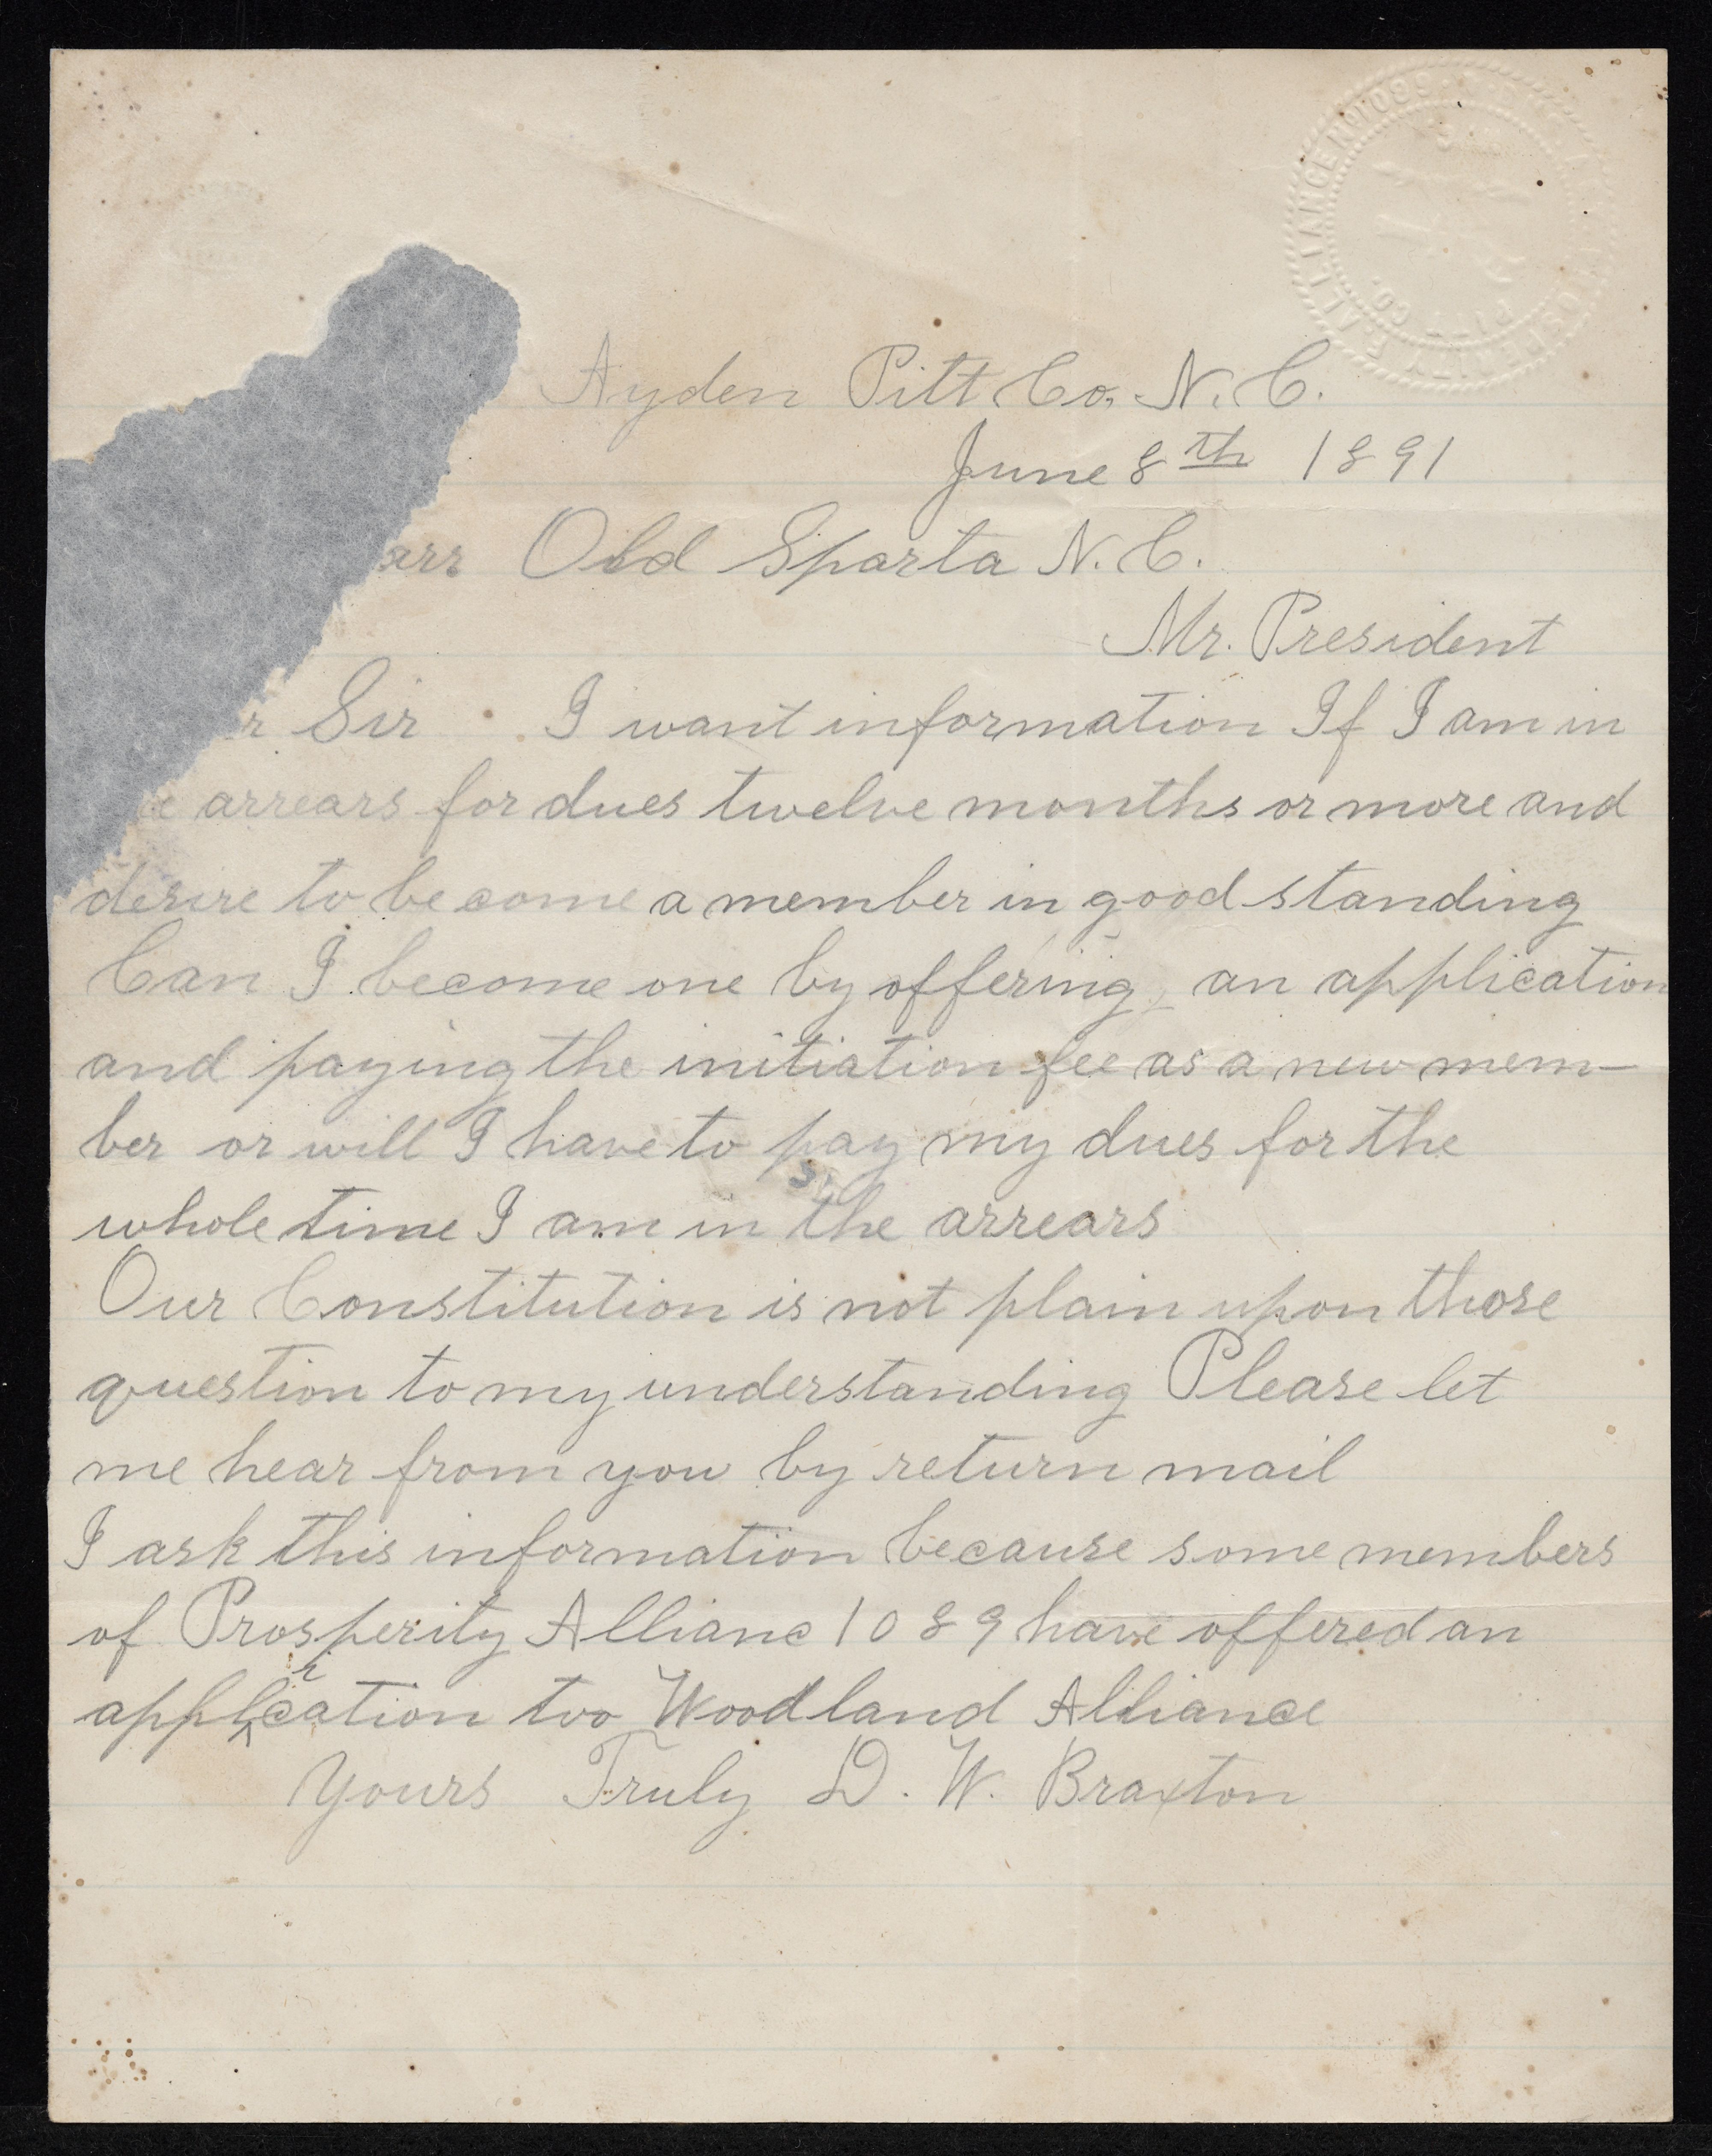 Ayden Pitt Co. N. C.
June 8th 1891
arr Old Sparta N. C.
Mr. President
r Sir I want information If I am in
e arrears for dues twelve months or more and
desire to become a member in good standing
Can I become one by offering an application
and paying the initiation fee as a new mem-
ber or will I have to pay my dues for the
whole time I am in the arrears
Our Constitution is not plain upon those
question to my understanding Please let
me hear from you by return mail
I ask this information because some members
of Prosperity Allianc 1089 have offered an
application too Woodland Alliance
Yours Truly D. W. Braxton